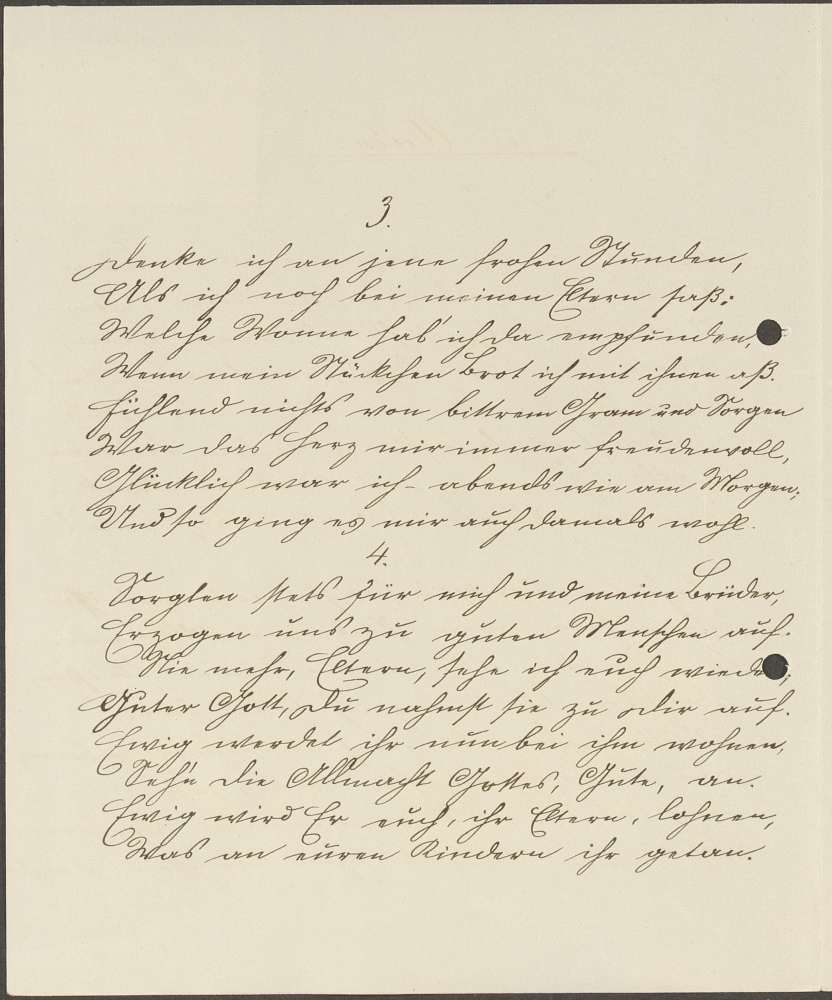 3.
Denke ich an jene frohen Stunden,
Als ich noch bei meinen Eltern saß:
Welche Wonne hab' ich da empfunden,
Wenn mein Stückchen Brot ich mit ihnen aß.
Fühlend nichts von bittrem Gram und Sorgen
War das Herz mir immer freudenvoll,
Glücklich war ich - abends wie am Morgen;
Und so ging es mir auch damals wohl.
4.
Sorgten stets für mich und meine Brüder,
Erzogen uns zu guten Menschen auf.
Nie mehr, Eltern, sehe ich euch wieder;
Guter Gott, Du nahmst sie zu Dir auf.
Ewig werdet ihr nun bei ihm wohnen,
Seh'n die Allmacht Gottes, Güte, an.
Ewig wird Er euch, ihr Eltern, lohnen,
Was an euren Kindern ihr getan.